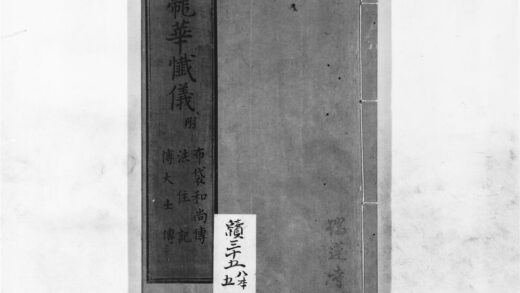 龍華懺儀附
布袋和尚傳
法住記
傅大士傳
續三十五
八本
五